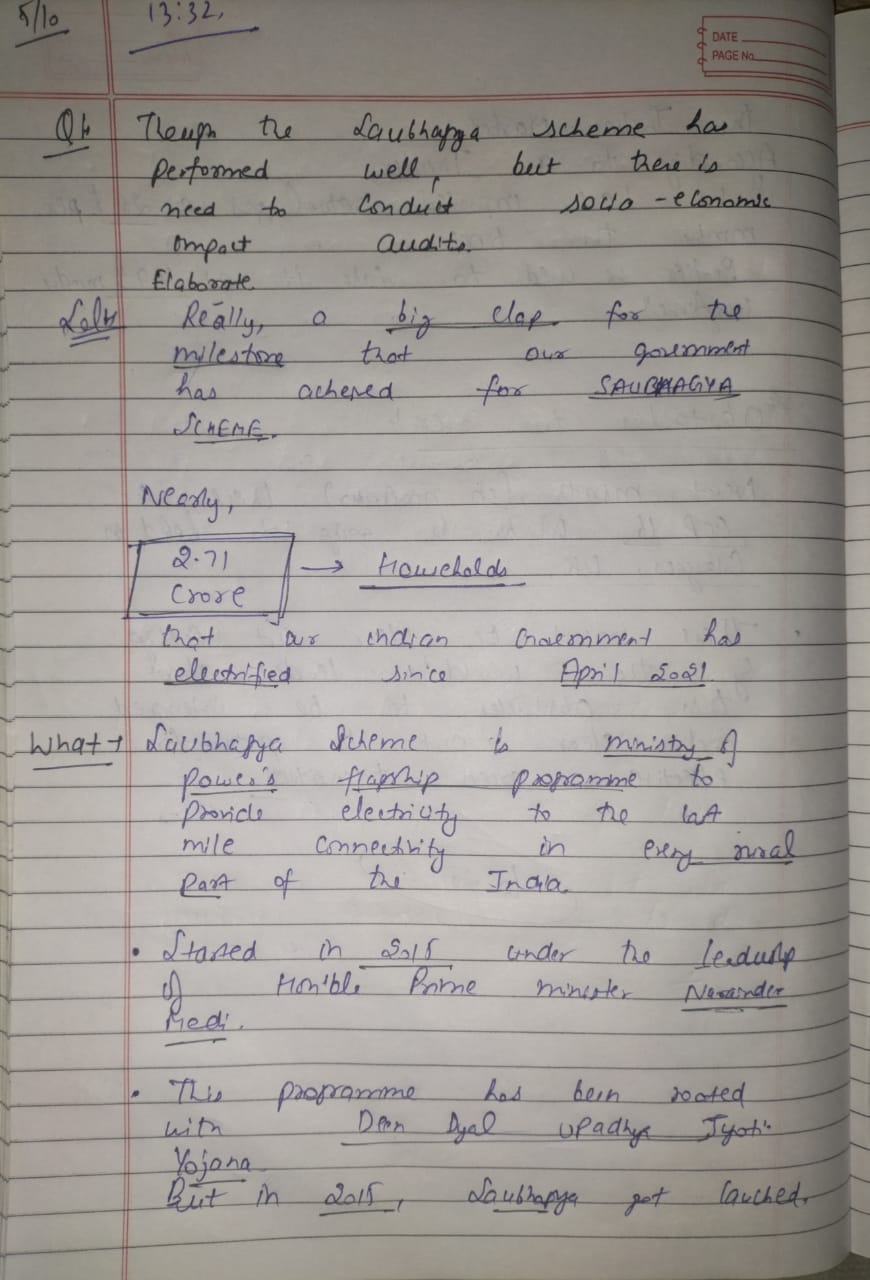 5/10 13:32,
DATE
PAGE No.
Q1. Though the Saubhagya scheme has
performed well, but there is
need to conduct socio-economic
impact audits.
Elaborate.
Soln Really, a big clap for the
milestone that our government
has acheved for SAUBHAGYA
SCHEME.
Nearly,
2.71
Crore → Households
that our indian Government has
electrified since April 2021
What → Saubhagya Scheme is ministry of
power's flagship programme to
provide electricity to the last
mile connectivity in every rural
part of the India
• Started in 2015 under the leadership
of Hon'ble Prime minister Narainder
Modi.
• This programme has been rooted
with Deen Dyal Upadhya Jyoti
Yojana
But in 2015, Saubhagya got lauched.